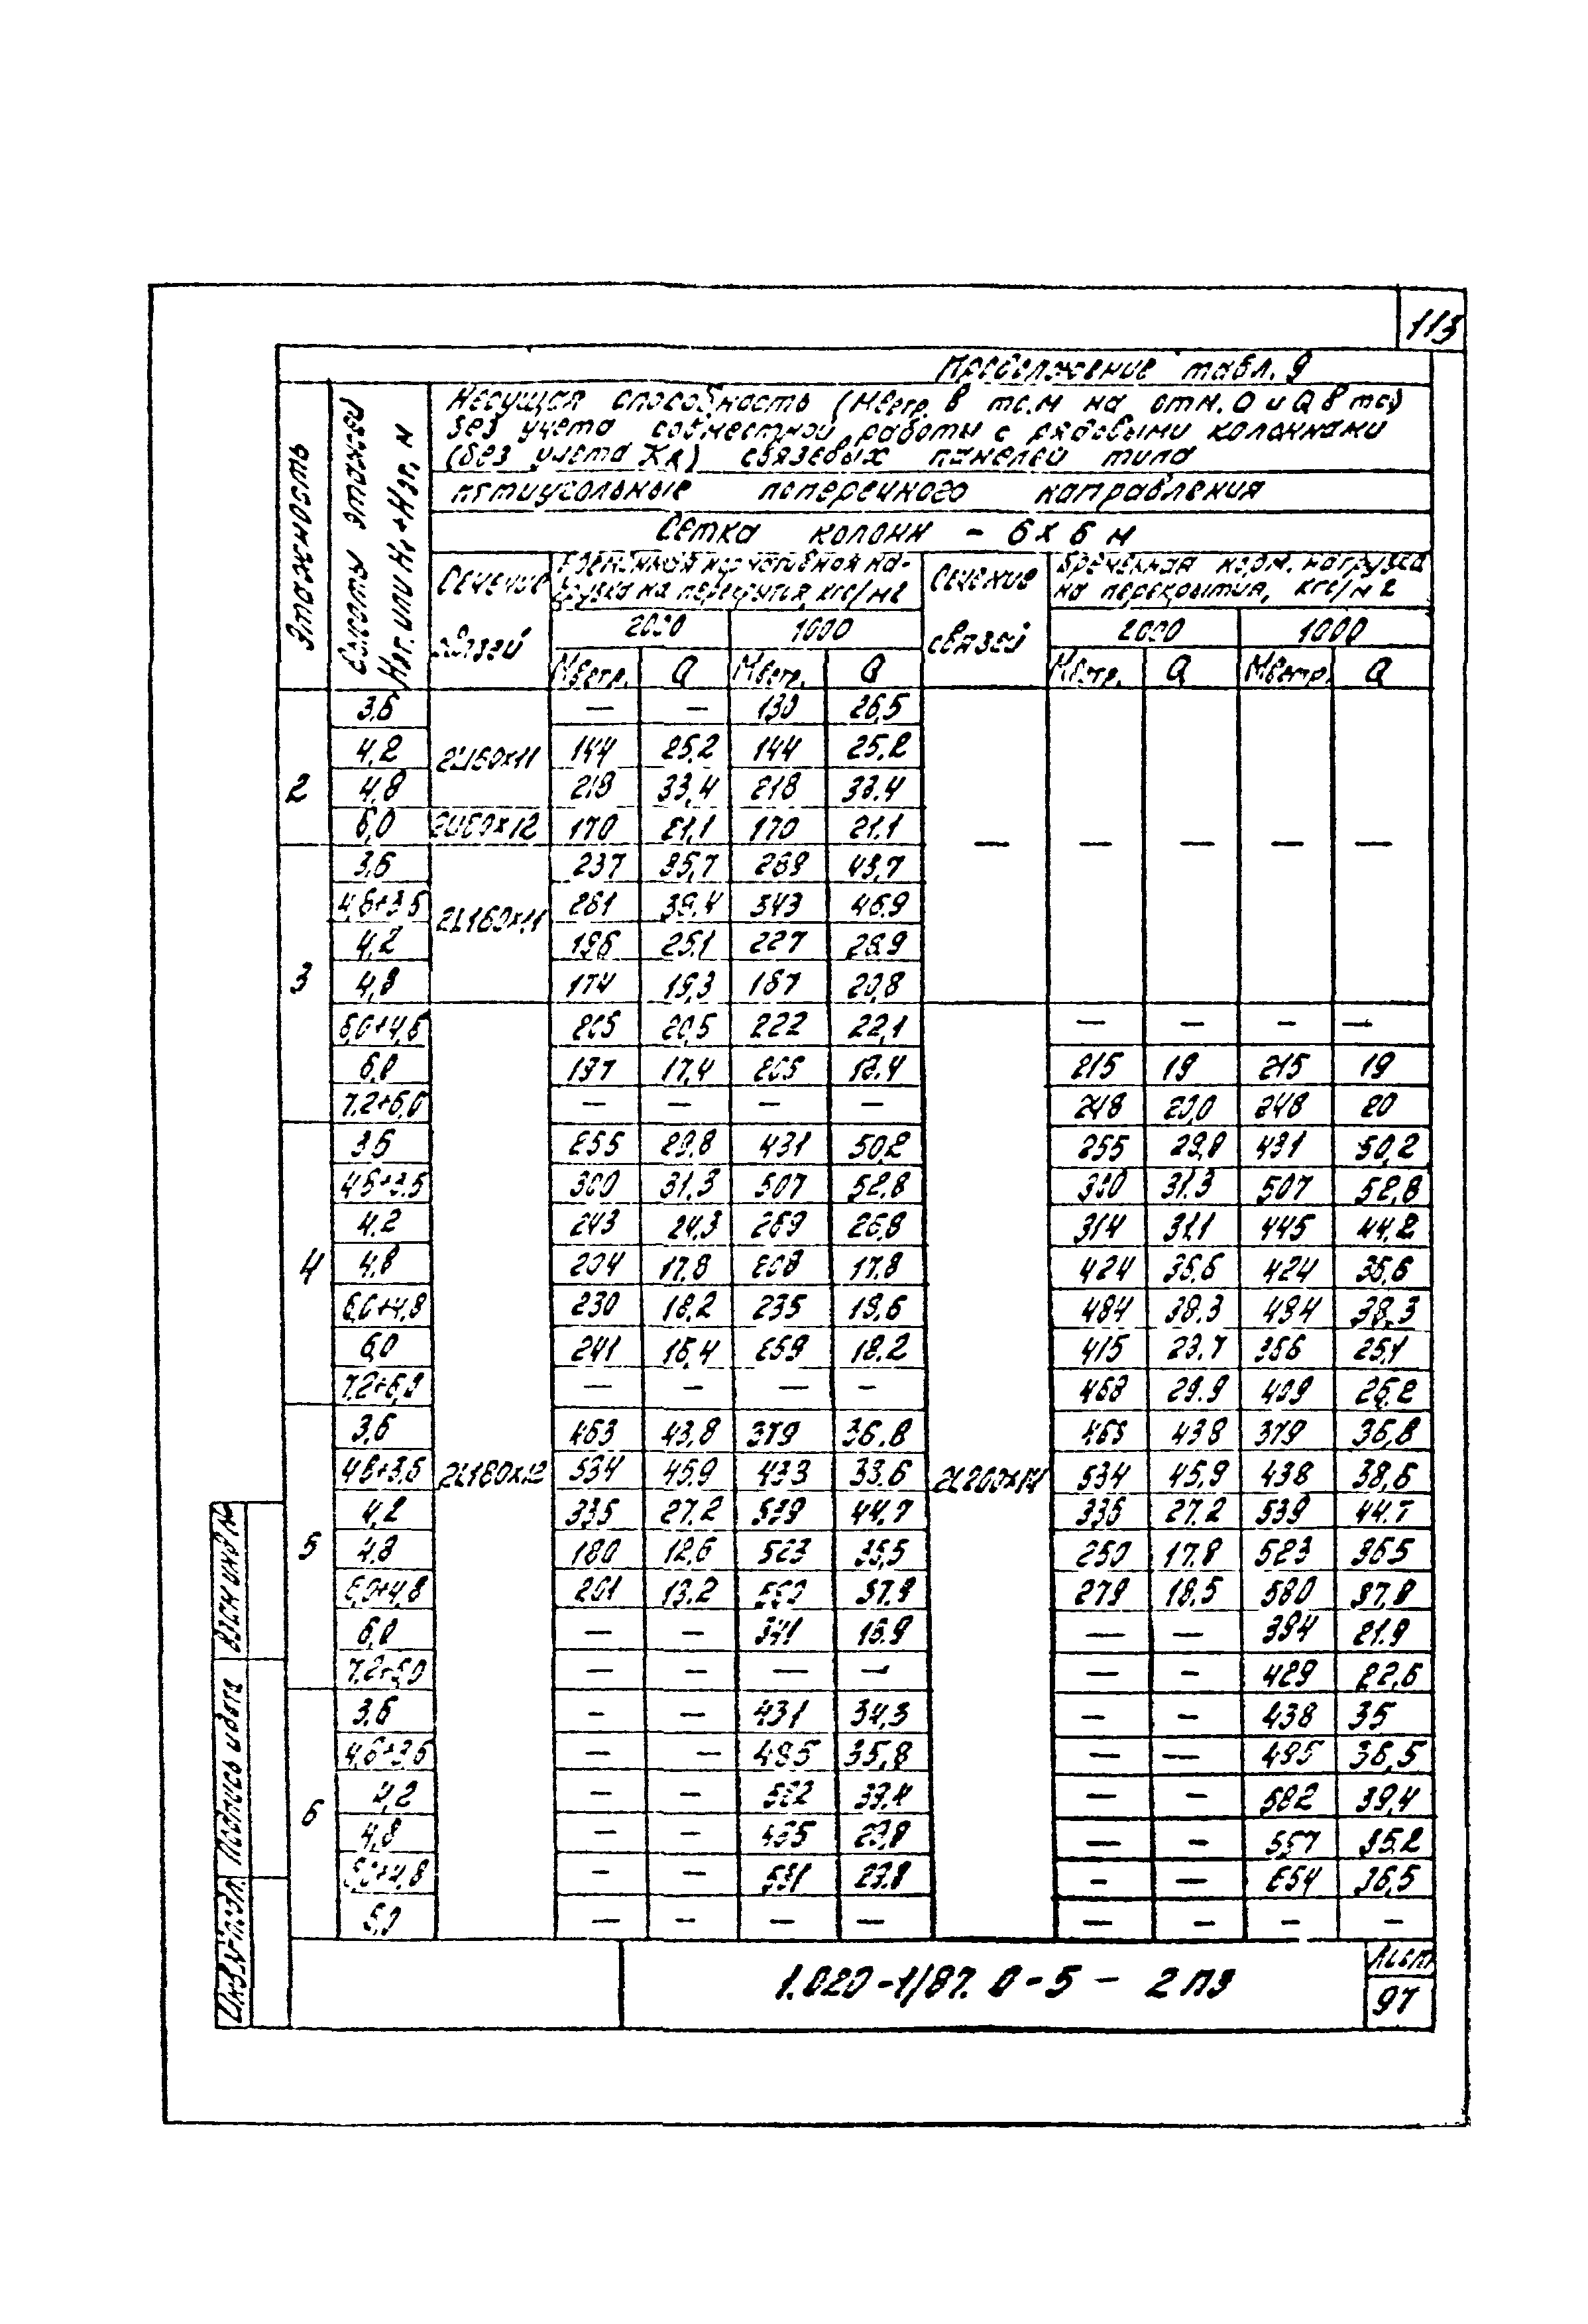 113
Продолжение табл. 9
Этажность
Высоты этажей Нэт. или Н1+Нэт, м
Несущая способность (Мветр. в тс.м на отм. 0 и Q в тс)
без учета совместной работы с рядовыми колоннами
(без учета Кд) связевых панелей типа
пятиугольные поперечного направления
Сетка колонн - 6 х 6 м
Сечение связей
Временная нормативная нагрузка на перекрытия, кгс/м2
Сечение связей
Временная норм. нагрузка на перекрытия, кгс/м2
2000 1000 2000 1000
Мветр. Q Мветр. Q Мветр. Q Мветр. Q
2
3,6 2L160×11 — — 130 26,5 — — — — —
4,2 144 25,2 144 25,2
4,8 218 33,4 218 33,4
6,0 2L160×12 170 21,1 170 21,1
3
3,6 2L160×11 237 35,7 289 43,7
4,8+3,6 281 39,4 343 46,9
4,2 196 25,1 227 28,9
4,8 174 19,3 187 20,8
6,0+4,8 2L160×12 205 20,5 222 22,1 2L200×14 — — — —
6,0 197 17,4 205 18,4 215 19 215 19
7,2+6,0 — — — — 248 20,0 248 20
4
3,6 255 29,8 431 50,2 255 29,8 431 50,2
4,8+3,6 300 31,3 507 52,8 300 31,3 507 52,8
4,2 243 24,3 269 26,8 314 31,1 445 44,2
4,8 204 17,8 208 17,8 424 35,6 424 35,6
6,0+4,8 230 18,2 235 18,6 484 38,3 484 38,3
6,0 241 16,4 259 18,2 415 29,7 356 25,1
7,2+6,0 — — — — 468 29,9 409 26,2
5
3,6 463 43,8 379 36,8 463 43,8 379 36,8
4,8+3,6 534 45,9 433 38,6 534 45,9 438 38,6
4,2 335 27,2 539 44,7 336 27,2 539 44,7
4,8 180 12,6 523 35,5 250 17,8 523 36,5
6,0+4,8 201 13,2 580 37,8 279 18,5 580 37,8
6,0 — — 341 18,9 — — 394 21,9
7,2+6,0 — — — — — — 429 22,6
6
3,6 — — 431 34,3 — — 438 35
4,8+3,6 — — 485 35,8 — — 495 36,5
4,2 — — 582 39,4 — — 582 39,4
4,8 — — 465 29,8 — — 557 35,2
6,0+4,8 — — 531 29,8 — — 654 36,5
6,0 — — — — — — — —
Взам инв №
Подпись и дата
Инв. № подл.
1.020-1/87. 0-5 - 2 ПЗ
Лист
97